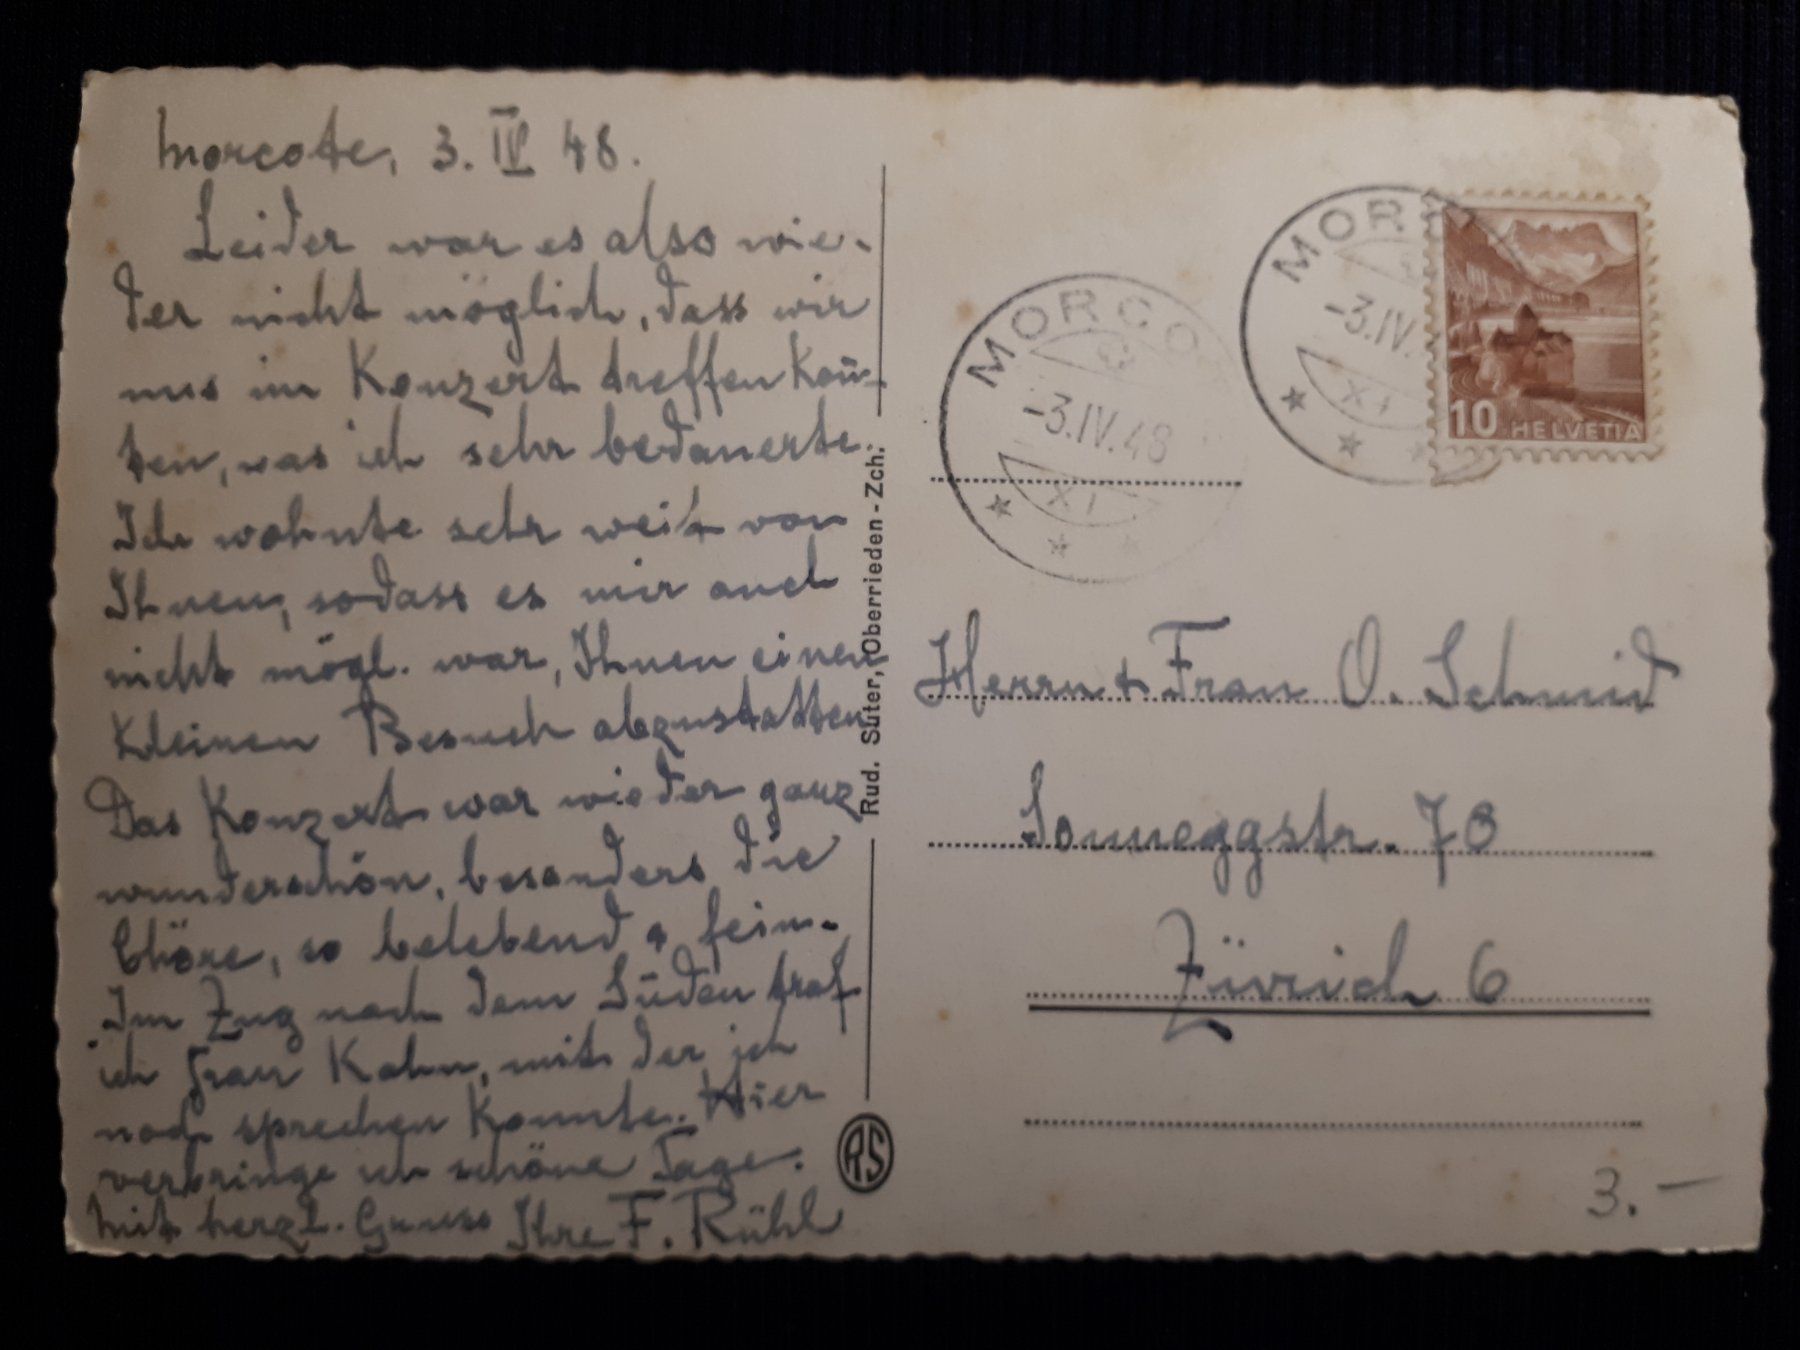 Morcote, 3. IV 48.
Leider war es also wie-
der nicht möglich, dass wir
uns im Konzert treffen konn-
ten, was ich sehr bedauerte.
Ich wohnte sehr weit von
Ihnen, sodass es mir auch
nicht mögl. war, Ihnen einen
kleinen Besuch abzustatten
Das Konzert war wieder ganz
wunderschön, besonders die
Chöre, so belebend & fein.
Im Zug nach dem Süden traf
ich Frau Kahn, mit der ich
noch sprechen konnte. Hier
verbringe ich schöne Tage.
Mit herzl. Gruss Ihre F. Rühl
Rud. Suter, Oberrieden-Zch.
RS
MORCO
-3.IV.48
XI
MOR
-3.IV.
XI
10 HELVETIA
Herrn & Frau O. Schmid
Sonneggstr. 78
Zürich 6
3.—